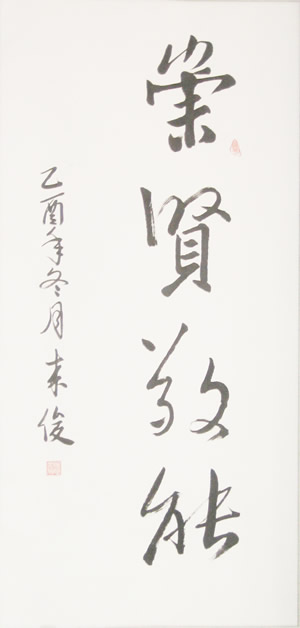 崇賢敬能
乙酉年冬月來俊